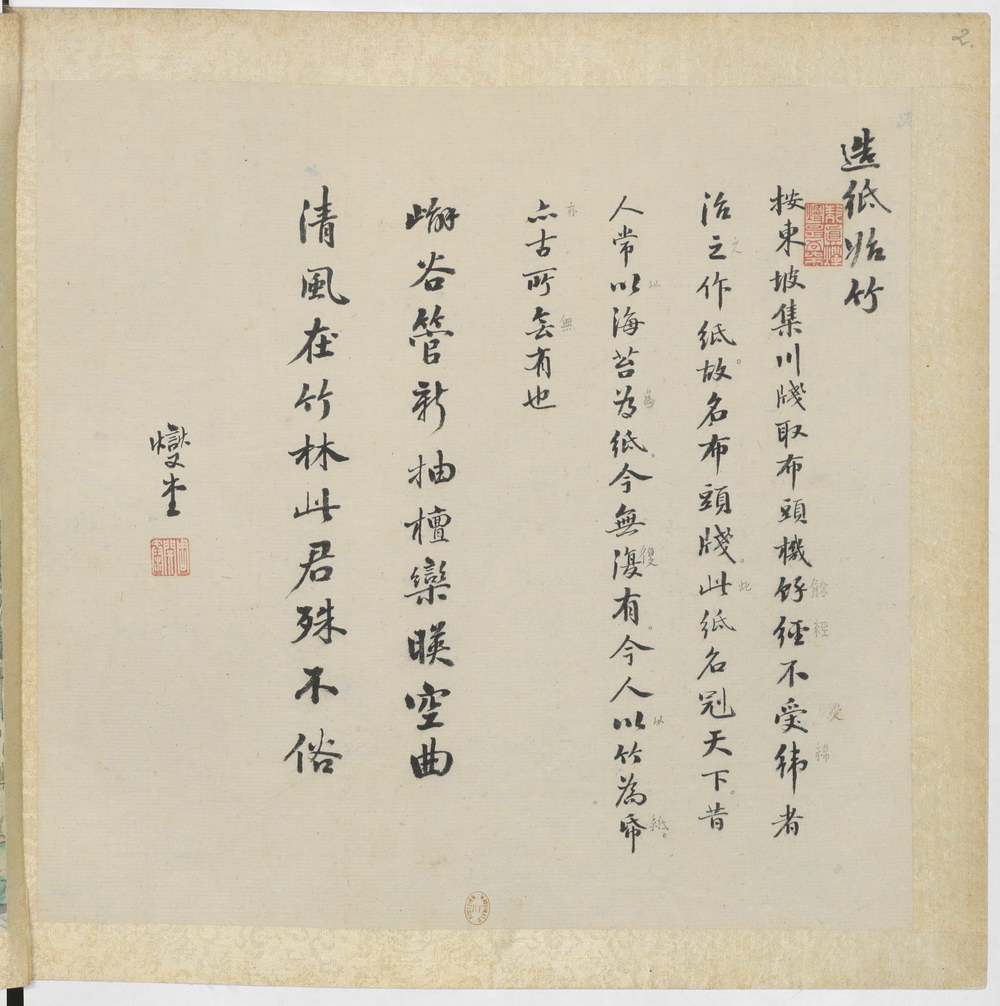 2.
造紙始竹
按東坡集川牋取布頭機餘經不受緯者
治之作紙故名布頭牋此紙名冠天下昔
人常以海苔為紙今無復有今人以竹為帋
亦古所無有也
嶰谷管新抽檀欒暎空曲
清風在竹林此君殊不俗
燮堂